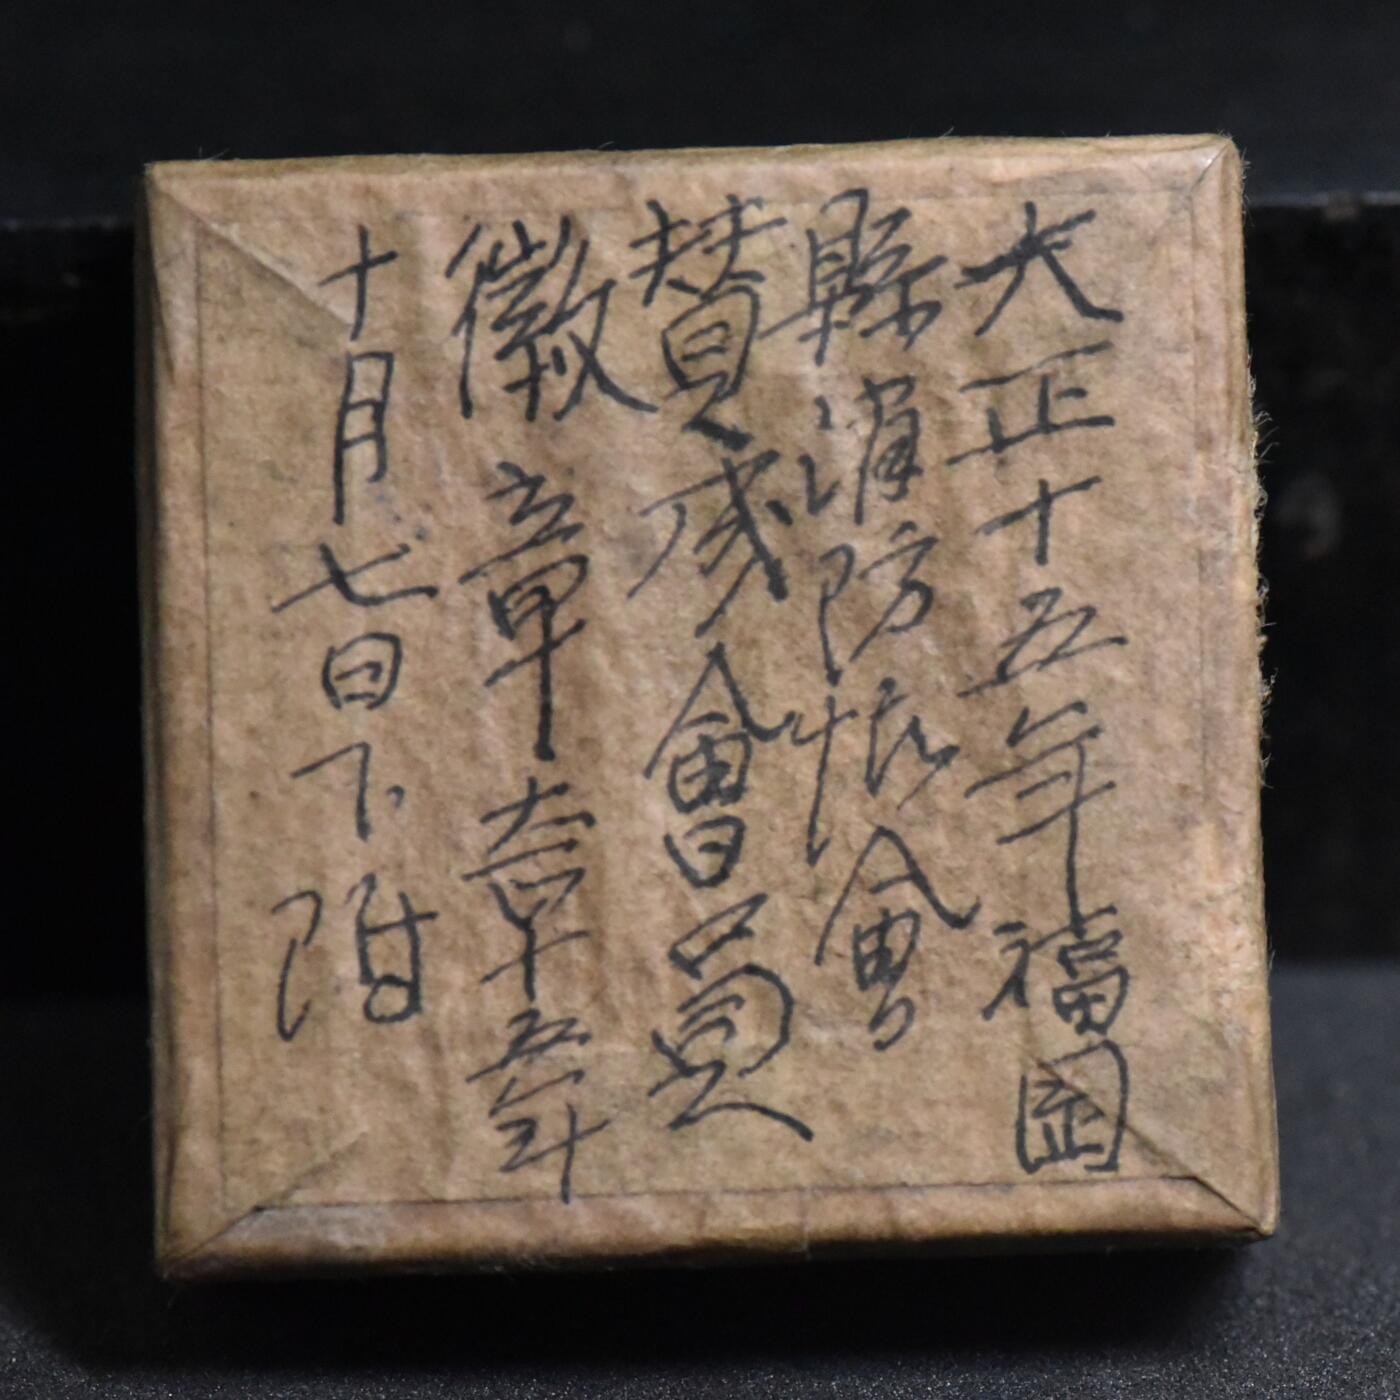 大正十五年福岡
縣消防協會
賛成會員
徽章大正十五年
十月七日下附